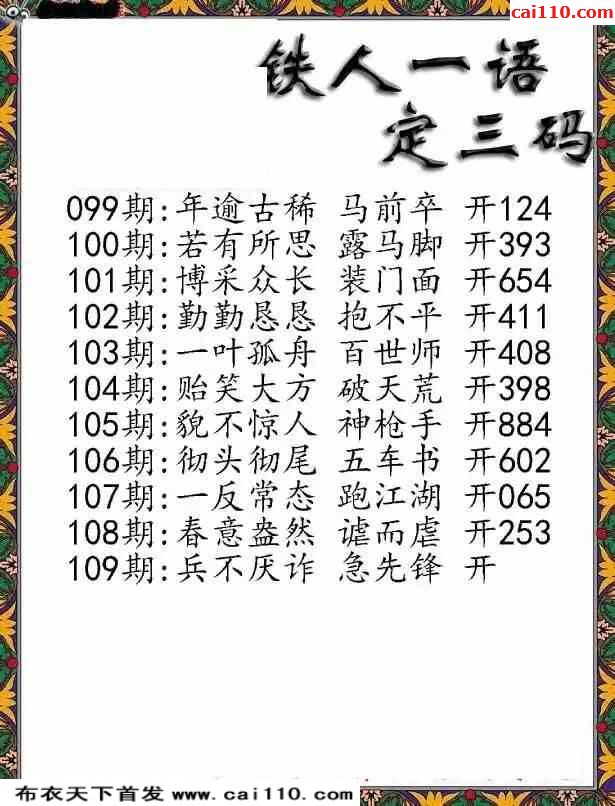 cai110.com
铁人一语
定三码
099期:年逾古稀 马前卒 开124
100期:若有所思 露马脚 开393
101期:博采众长 装门面 开654
102期:勤勤恳恳 抱不平 开411
103期:一叶孤舟 百世师 开408
104期:贻笑大方 破天荒 开398
105期:貌不惊人 神枪手 开884
106期:彻头彻尾 五车书 开602
107期:一反常态 跑江湖 开065
108期:春意盎然 谑而虐 开253
109期:兵不厌诈 急先锋 开
布衣天下首发 www.cai110.com